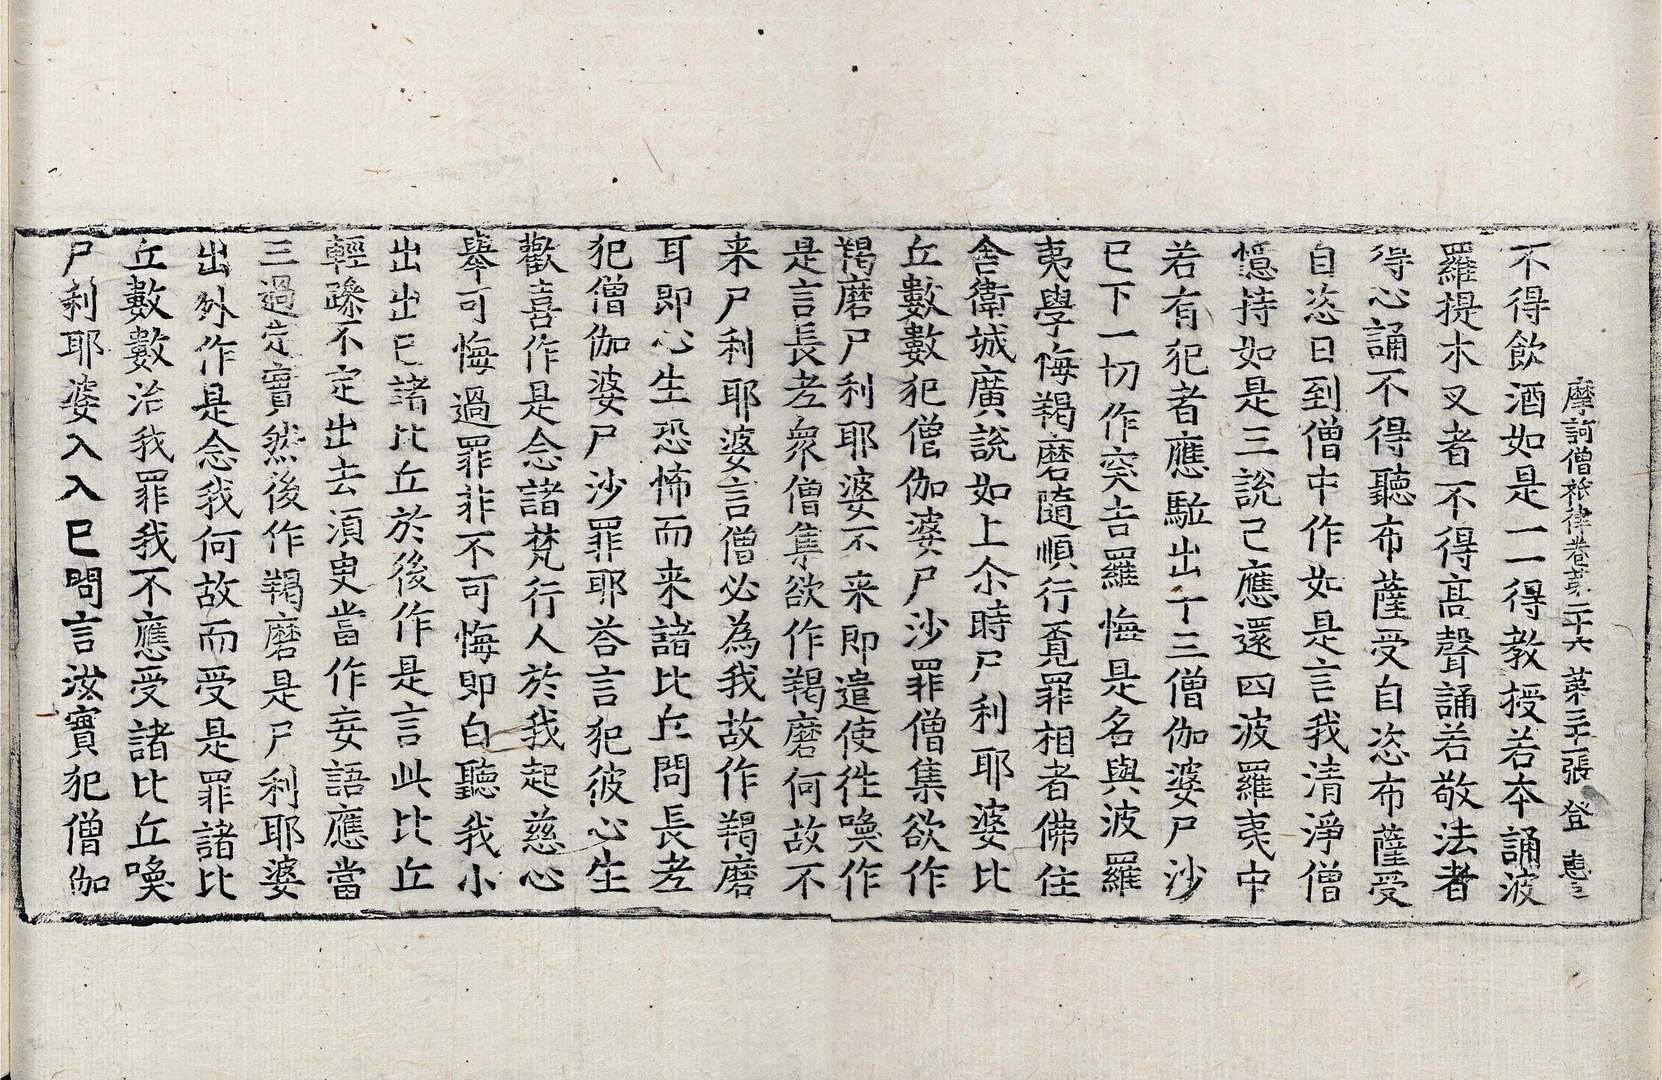 摩訶僧祇律卷苐二十六 苐三十張 登
不得飲酒如是一一得教授若夲誦波
羅提木叉者不得髙聲誦若敬法者
得心誦不得聽布薩受自恣布薩受
自恣日到僧中作如是言我清淨僧
憶持如是三說己應還四波羅夷中
若有犯者應駈出十三僧伽婆尸沙
已下一切作突吉羅悔是名與波羅
夷學悔羯磨隨順行覔罪相者佛住
舎衛城廣說如上尒時尸利耶婆比
丘數數犯僧伽婆尸沙罪僧集欲作
羯磨尸利耶婆不来即遣使徃喚作
是言長老衆僧集欲作羯磨何故不
来尸利耶婆言僧必為我故作羯磨
耳即心生恐怖而来諸比丘問長老
犯僧伽婆尸沙罪耶荅言犯彼心生
歡喜作是念諸梵行人於我起慈心
舉可悔過罪非不可悔即白聽我小
出出已諸比丘於後作是言此比丘
輕躁不定出去湏臾當作妄語應當
三過定實然後作羯磨是尸利耶婆
出外作是念我何故而受是罪諸比
丘數數治我罪我不應受諸比丘喚
尸利耶婆入入已問言汝實犯僧伽